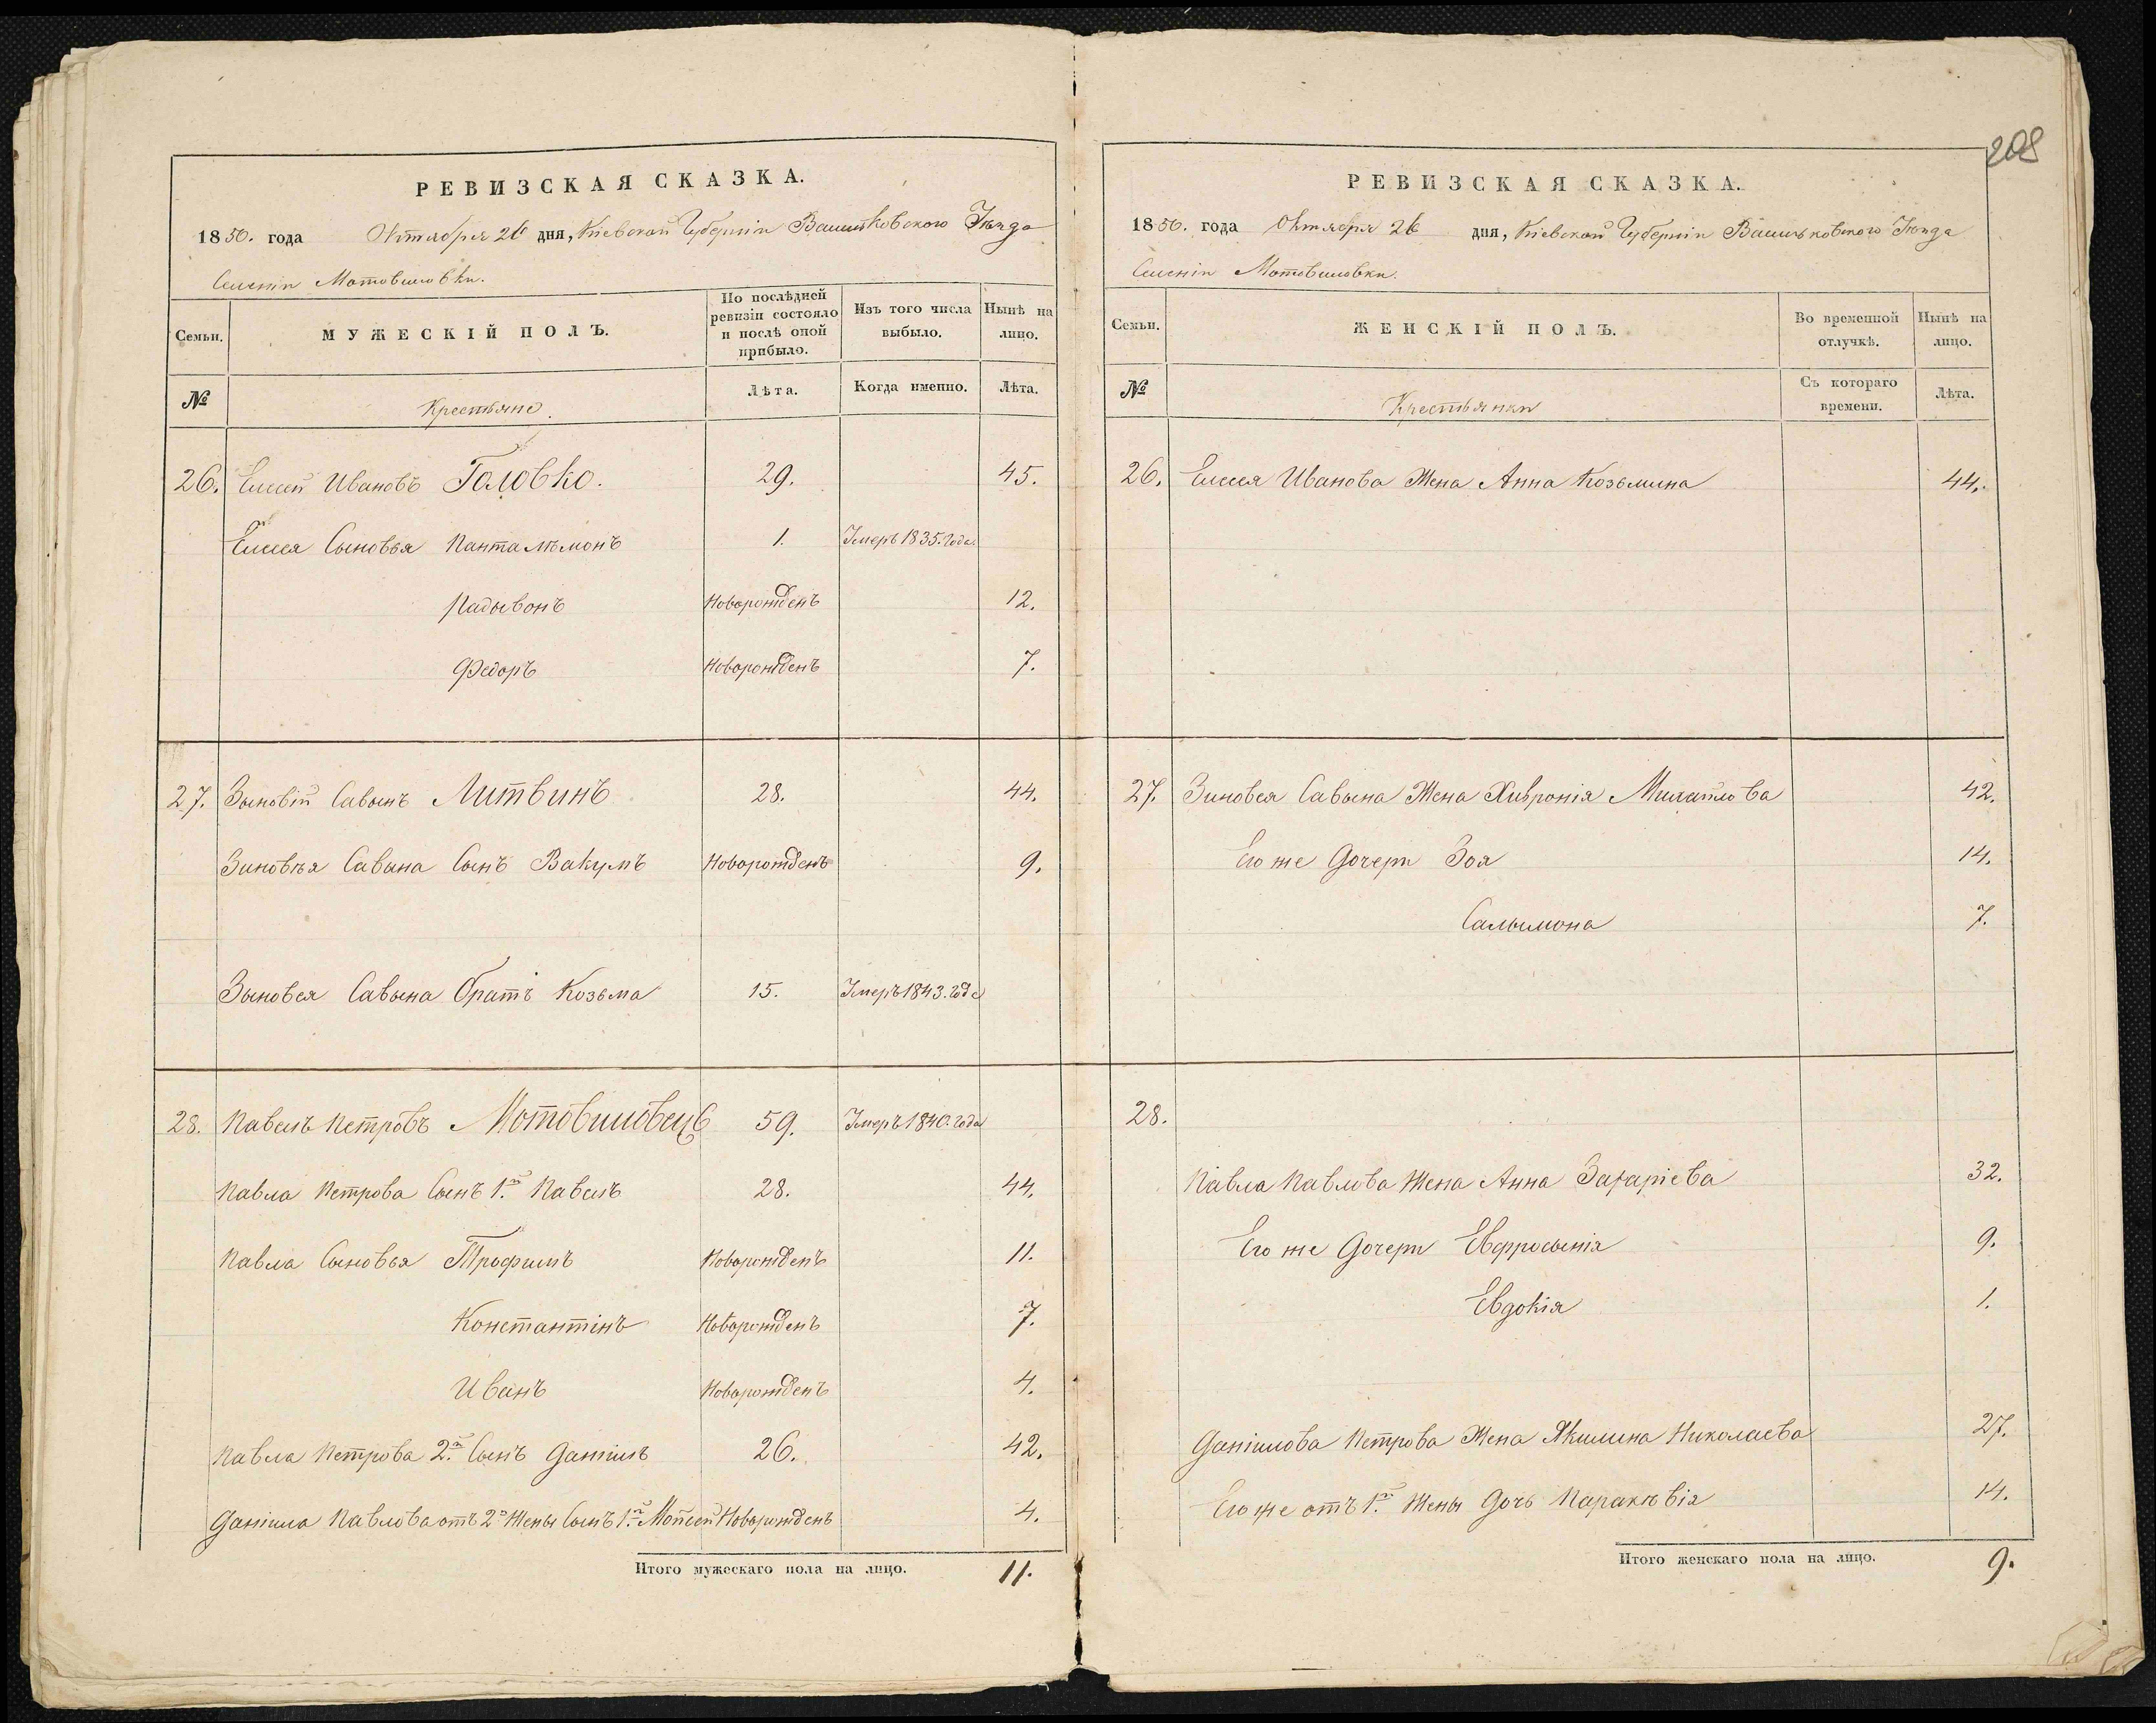 РЕВИЗСКАЯ СКАЗКА.
1850. года Октября 26 дня, Кіевской Губерніи Васильковского Уѣзда
Селенія Мотовиловки.
Семьи.
МУЖЕСКІЙ ПОЛЪ.
По послѣдней ревизіи состояло и послѣ оной прибыло.
Изъ того числа выбыло.
Нынѣ на лицо.
№
Крестьяне.
Лѣта.
Когда именно.
Лѣта.
26. Елисей Ивановъ Головко. 29. 45.
Елисея Сыновья Панталѣмонъ 1. Умеръ 1835. Года.
Радывонъ Новорожденъ 12.
Федоръ Новорожденъ 7.
27. Зыновій Савынъ Литвинъ 28. 44.
Зиновѣя Савына Сынъ Вакумъ Новорожденъ 9.
Зыновея Савына Братъ Козьма 15. Умеръ 1843. года
28. Павелъ Петровъ Мотовиловецъ 59. Умеръ 1840. года
Павла Петрова Сынъ 1.й Павелъ 28. 44.
Павла Сыновья Трофимъ Новорожденъ 11.
Константінъ Новорожденъ 7.
Иванъ Новорожденъ 4.
Павла Петрова 2.й Сынъ Даніилъ 26. 42.
Даніила Павлова отъ 2й Жены Сынъ 1.й Мойсей Новорожденъ 4.
Итого мужескаго пола на лицо. 11.
208
РЕВИЗСКАЯ СКАЗКА.
1850. года Октября 26 дня, Кіевской Губерніи Васильковского Уѣзда
Селенія Мотовиловки.
Семьи.
ЖЕНСКІЙ ПОЛЪ.
Во временной отлучкѣ.
Нынѣ на лицо.
№
Крестьянки
Съ котораго времени.
Лѣта.
26. Елисея Иванова Жена Анна Козьмина 44.
27. Зиновея Савына Жена Хивронія Михайлова 42.
Его же Дочери Зоя 14.
Салымона 7.
28.
Павла Павлова Жена Анна Захаріева 32.
Его же Дочери Евфросынія 9.
Евдокія 1.
Даніилова Петрова Жена Якилина Николаева 27.
Его же отъ 1.й Жены Дочь Паракѣвія 14.
Итого женскаго пола на лицо. 9.